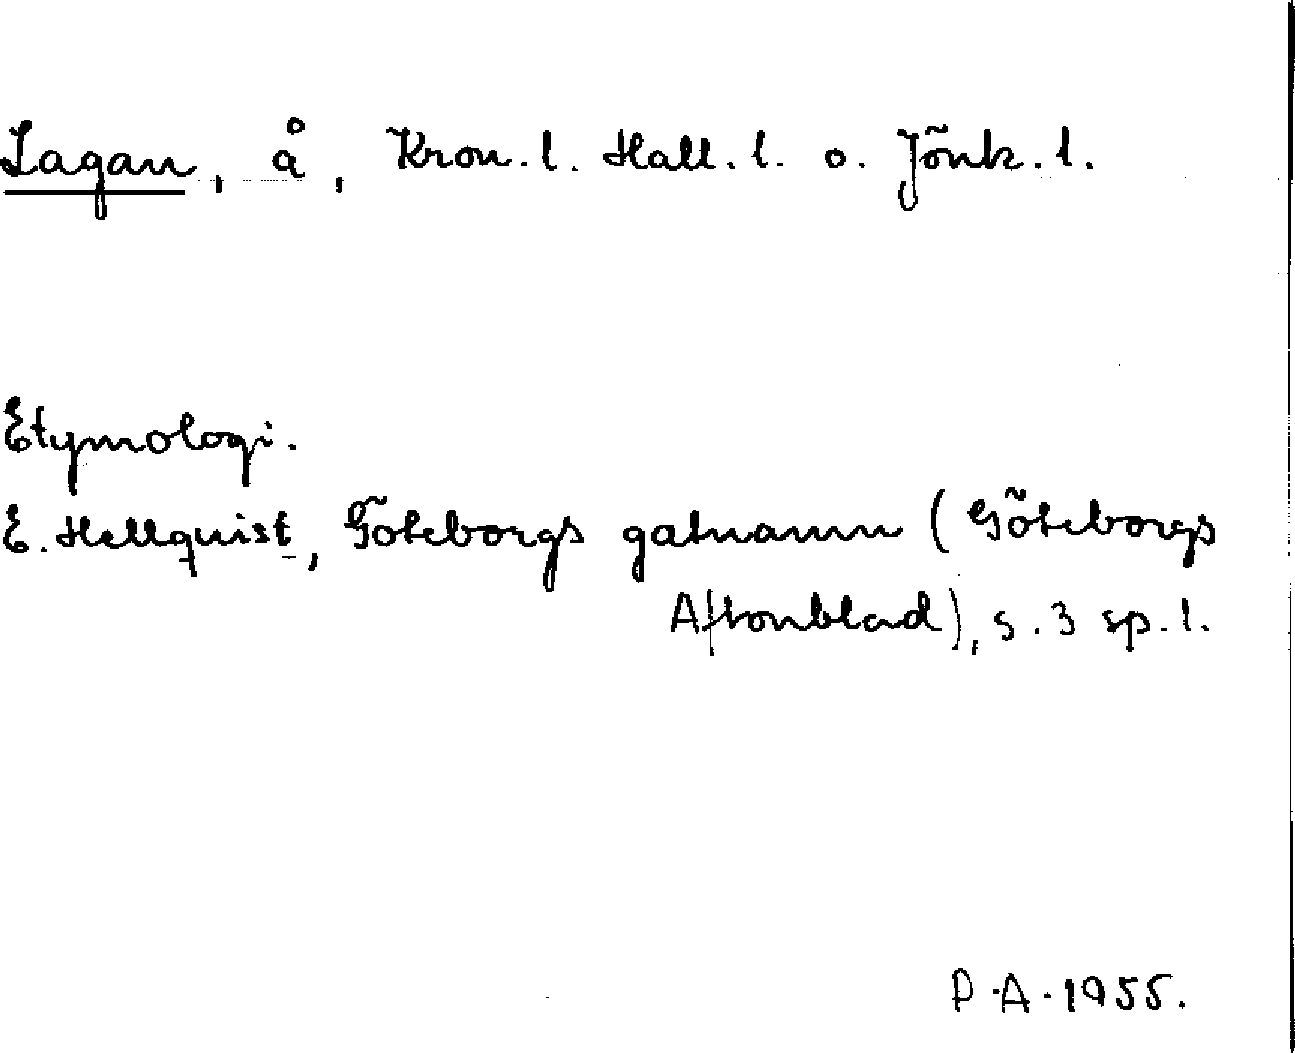 Lagan, å, Kron. l. Hall. l. o. Jönk. l.
Etymologi.
E. Hellquist, Göteborgs gatnamn (Göteborgs
Aftonblad), s. 3 sp. 1.
P.A. 1955.